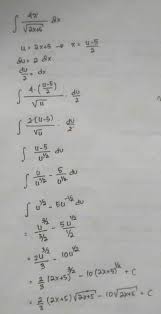 ∫ 4x/√(2x+5) dx
u = 2x+5 → x = (u-5)/2
du = 2 dx
du/2 = dx
∫ 4·((u-5)/2)/√u · du/2
∫ 2·(u-5)/√u · du/2
∫ (u-5)/u^(1/2) du
∫ u/u^(1/2) - 5/u^(1/2) du
∫ u^(1/2) - 5u^(-1/2) du
= u^(3/2)/(3/2) - 5u^(1/2)/(1/2)
= 2u^(3/2)/3 - 10u^(1/2)
= 2/3 (2x+5)^(3/2) - 10(2x+5)^(1/2) + C
= 2/3 (2x+5)√(2x+5) - 10√(2x+5) + C